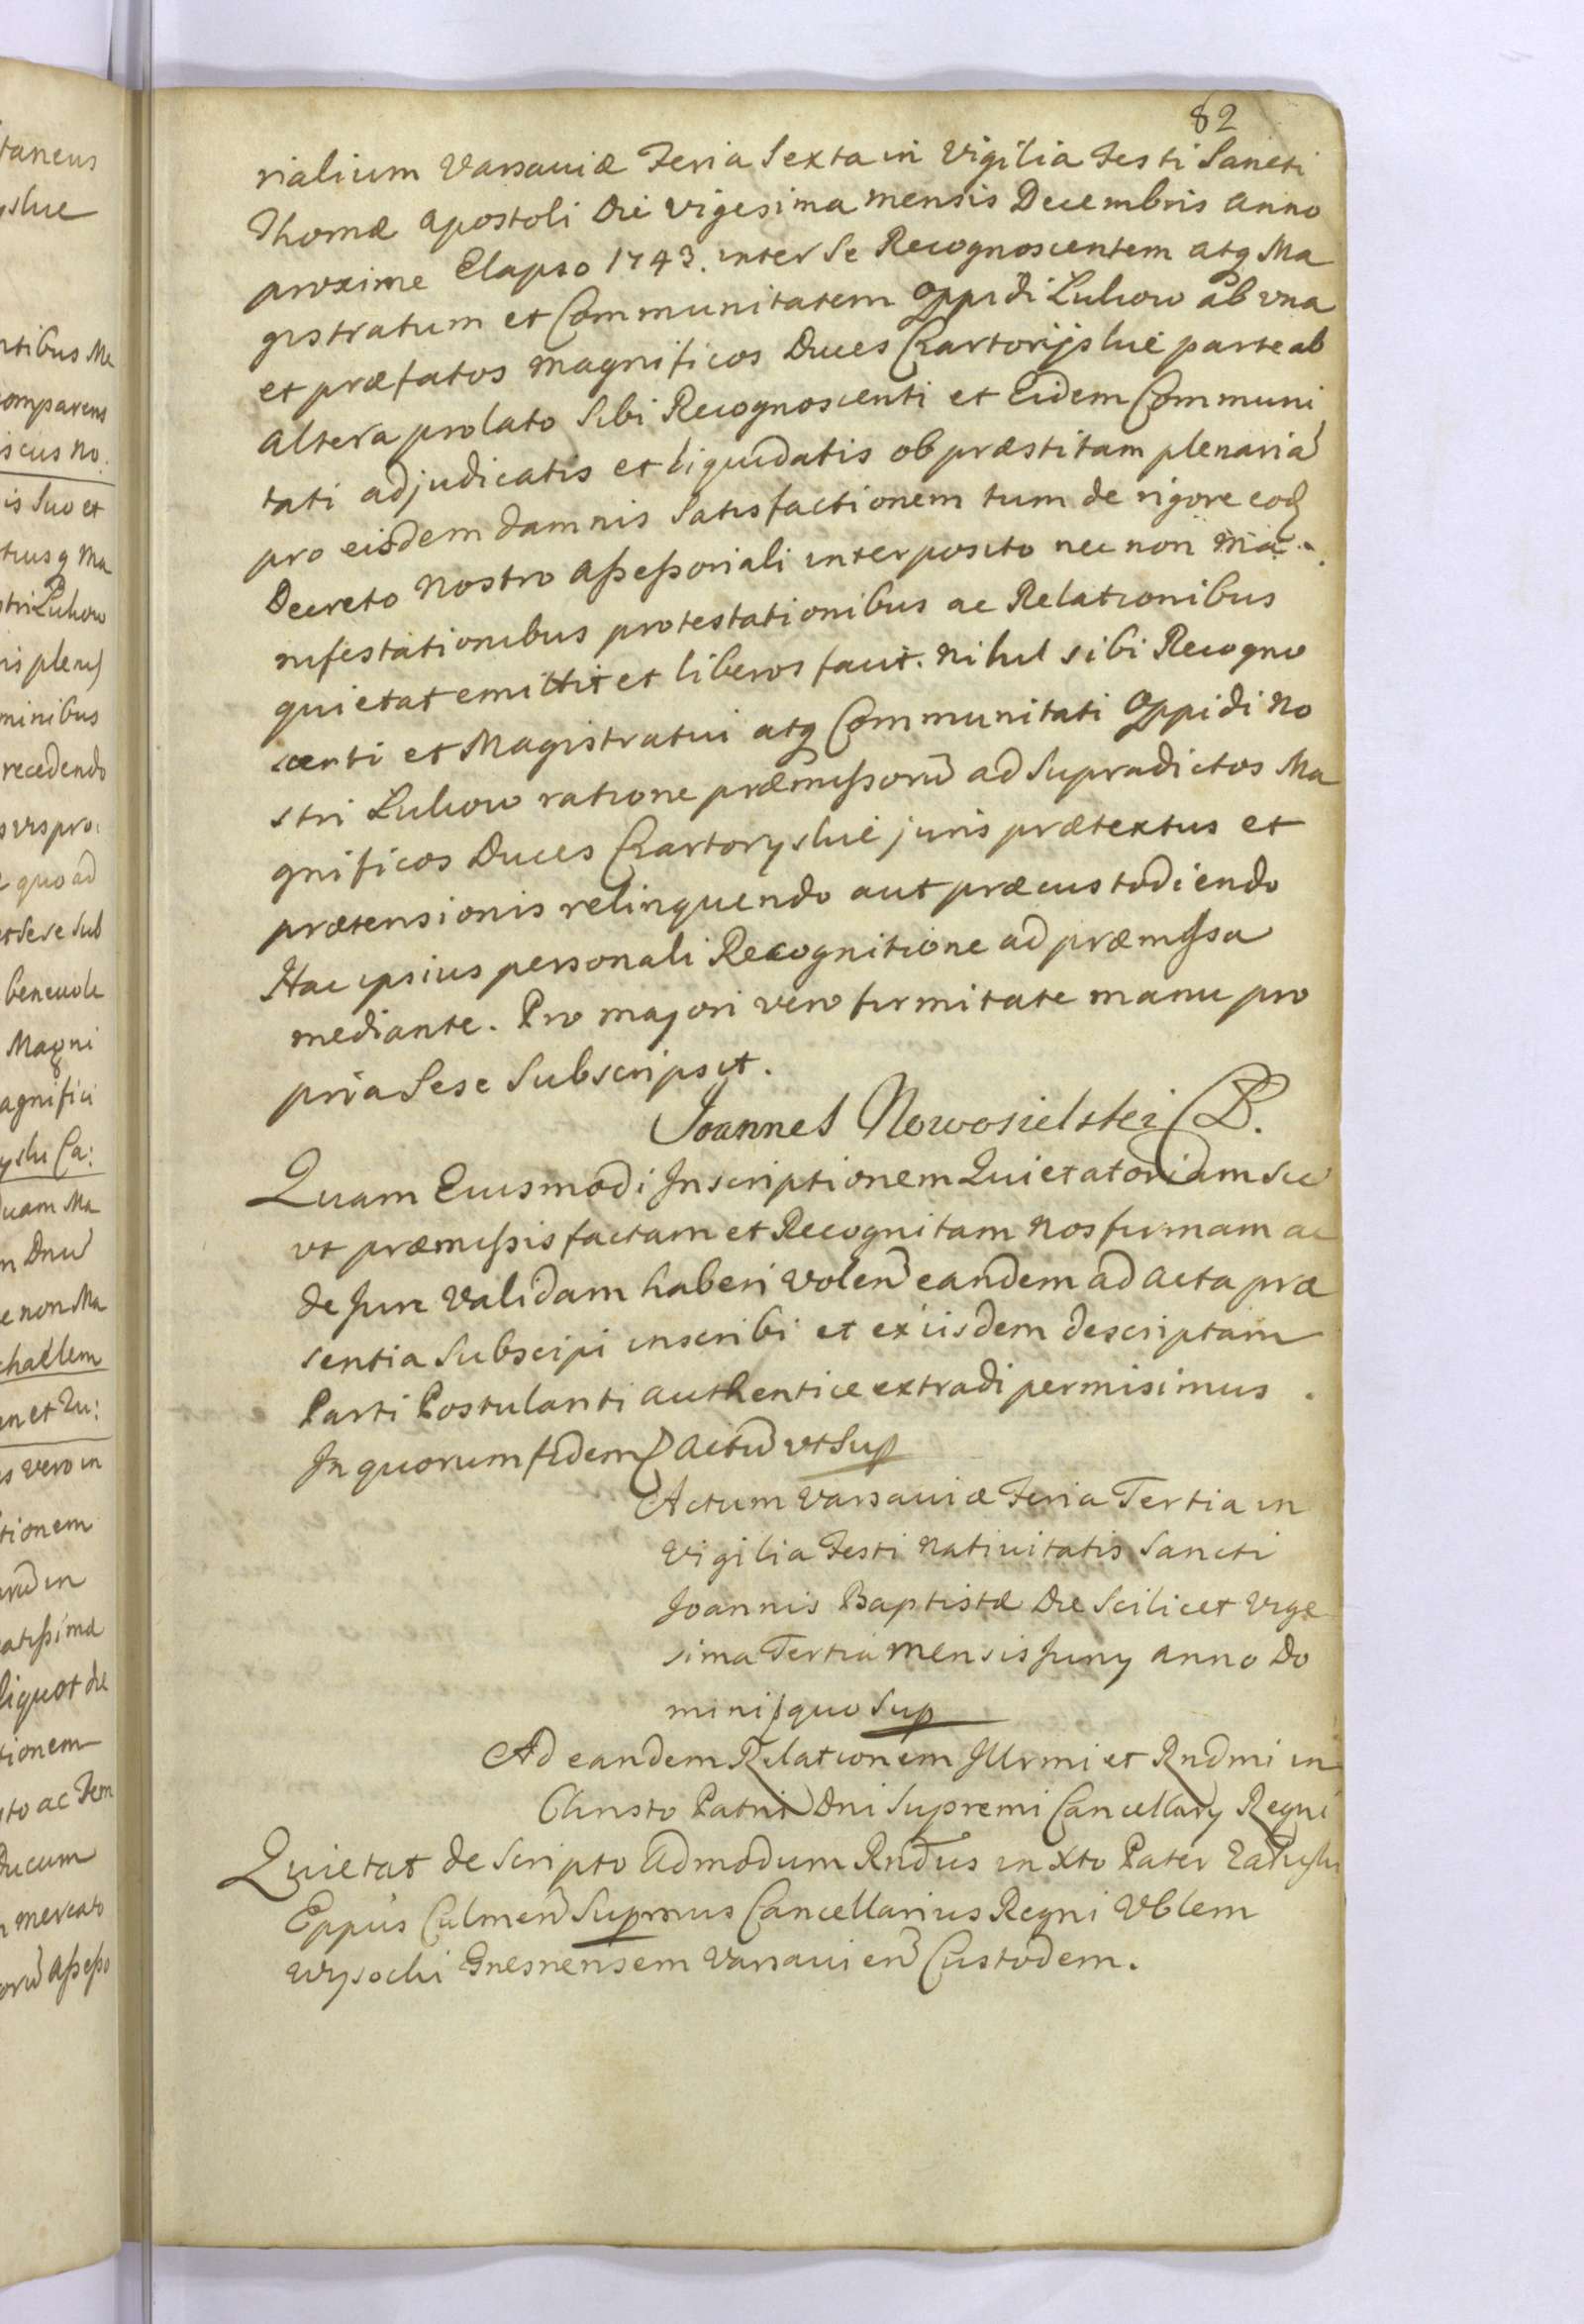 82
rialium Varsaviæ Feria Sexta in Vigilia Festi Sancti
Thomæ Apostoli Die vigesima mensis Decembris anno
proxime Elapso 1743. inter Se Recognoscentem atq Ma
gistratum et Communitatem Oppidi Lukow ab una
et præfatos Magnificos Duces Czartoryskie parte ab
altera prolato Sibi Recognoscenti et Eidem Communi
tati adjudicatis et liquidatis ob præstitam plenaria
pro eisdem damnis Satisfactionem tum de rigore eod
Decreto Nostro Assessoriali interposito nec non ma
nifestationibus protestationibus ac Relationibus
quietat emittit et liberos facit. Nihil sibi Recogno
scenti et Magistratui atq Communitati Oppidi No
stri Lukow ratione præmissoru ad Supradictos Ma
gnificos Duces Czartoryskie juris prætextus et
prætensionis relinquendo aut præcustodiendo
Hac ipsius personali Recognitione ad præmissa
mediante. Pro majori vero firmitate manu pro
pria Sese Subscripsit.
Joannes Nowosielski
Quam Eiusmodi Inscriptionem Quietatoriam sic
ut præmissis factam et Recognitam Nos firmam ac
de Jure Validam haberi volen eandem ad Acta præ
sentia Subscipi inscribi et ex iisdem descriptam
Parti Postulanti authentice extradi permisimus.
In quorum fidem Actu ut Sup
Actum Varsaviæ Feria Tertia in
Vigilia Festi Nativitatis Sancti
Joannis Baptistæ Die Scilicet Vige
sima Tertia mensis Juny Anno Do
mini quo Sup
Ad eandem Relationem Illrmi et Rndmi in
Christo Patris Dni Supremi Cancellary Regni
Quietat de Scripto Admodum Rndus in Xto Pater Załuski
Eppus Culmen Supmus Cancellarius Regni Vblem
Wysocki Gnesnensem Varsavien Custodem.
taneus
yskie
ntibus Ma
comparens
iscus No.
is suo et
tusq Ma
stri Lukow
minibus
recedendo
quo ad
et Sese Sub
benevole
Magni
agnifici
yski Ca:
uam Ma
Dnu
e non Ma
en et Tu:
s vero in
tionem
atissima
liquot die
tionem
to ac Fern
Ducum
mercato
oru Assesso